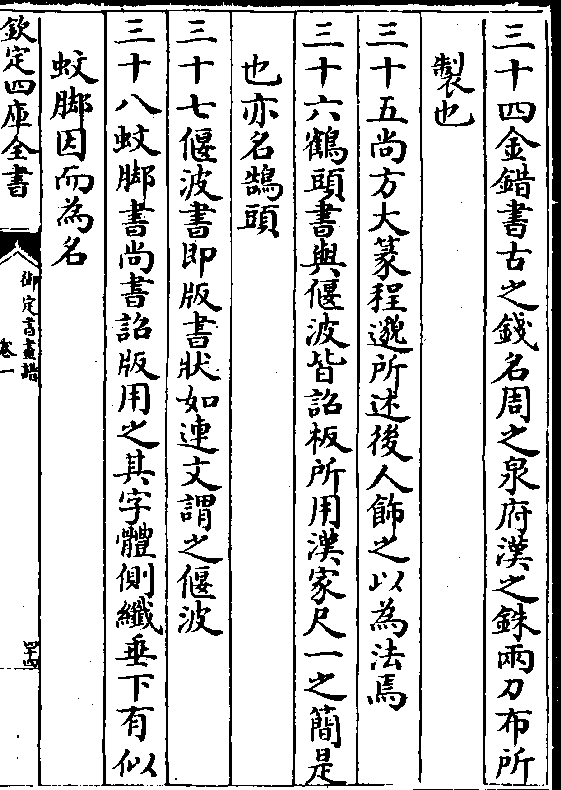 三十四金錯書古之錢名周之泉府漢之銖兩刀布所
製也
三十五尚方大篆程邈所述後人飾之以為法焉
三十六鶴頭書與偃波皆詔板所用漢家尺一之簡是
也亦名鵠頭
三十七偃波書即版書狀如連文謂之偃波
三十八蚊脚書尚書詔版用之其字體側纖垂下有似
蚊脚因而為名
欽定四庫全書
御定書畫譜
卷一
四十四